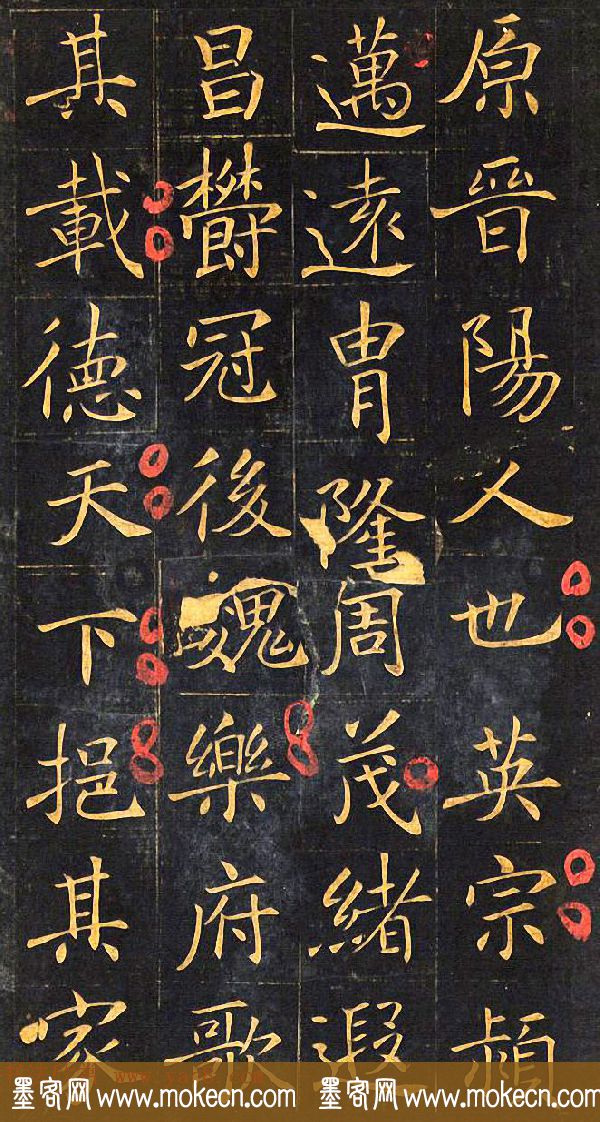 原晉陽人也英宗穎
邁遠冑隆周茂緒遐
昌欝冠後魏樂府歌
其載德天下挹其家
墨客网 www.mokecn.com 墨客网 www.mokecn.com